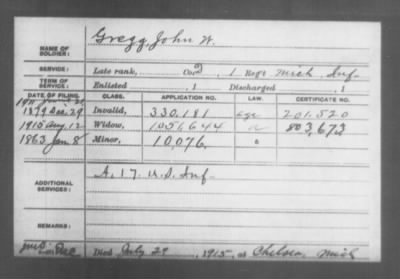 NAME OF SOLDIER: Gregg, John W.
SERVICE: Late rank, Co. 1 Regt Mich. Inf.
TERM OF SERVICE: Enlisted , 1 Discharged , 1
DATE OF FILING. CLASS. APPLICATION NO. LAW. CERTIFICATE NO.
1879 Dec. 29 Invalid, 330,181 age 201,520
1915 Aug. 12 Widow, 1051,644 803,673
1863 Jan 8 Minor, 10,076
ADDITIONAL SERVICES: A. 17. U.S. Inf.
REMARKS:
Died July 29, 1915, at Chelsea, Mich